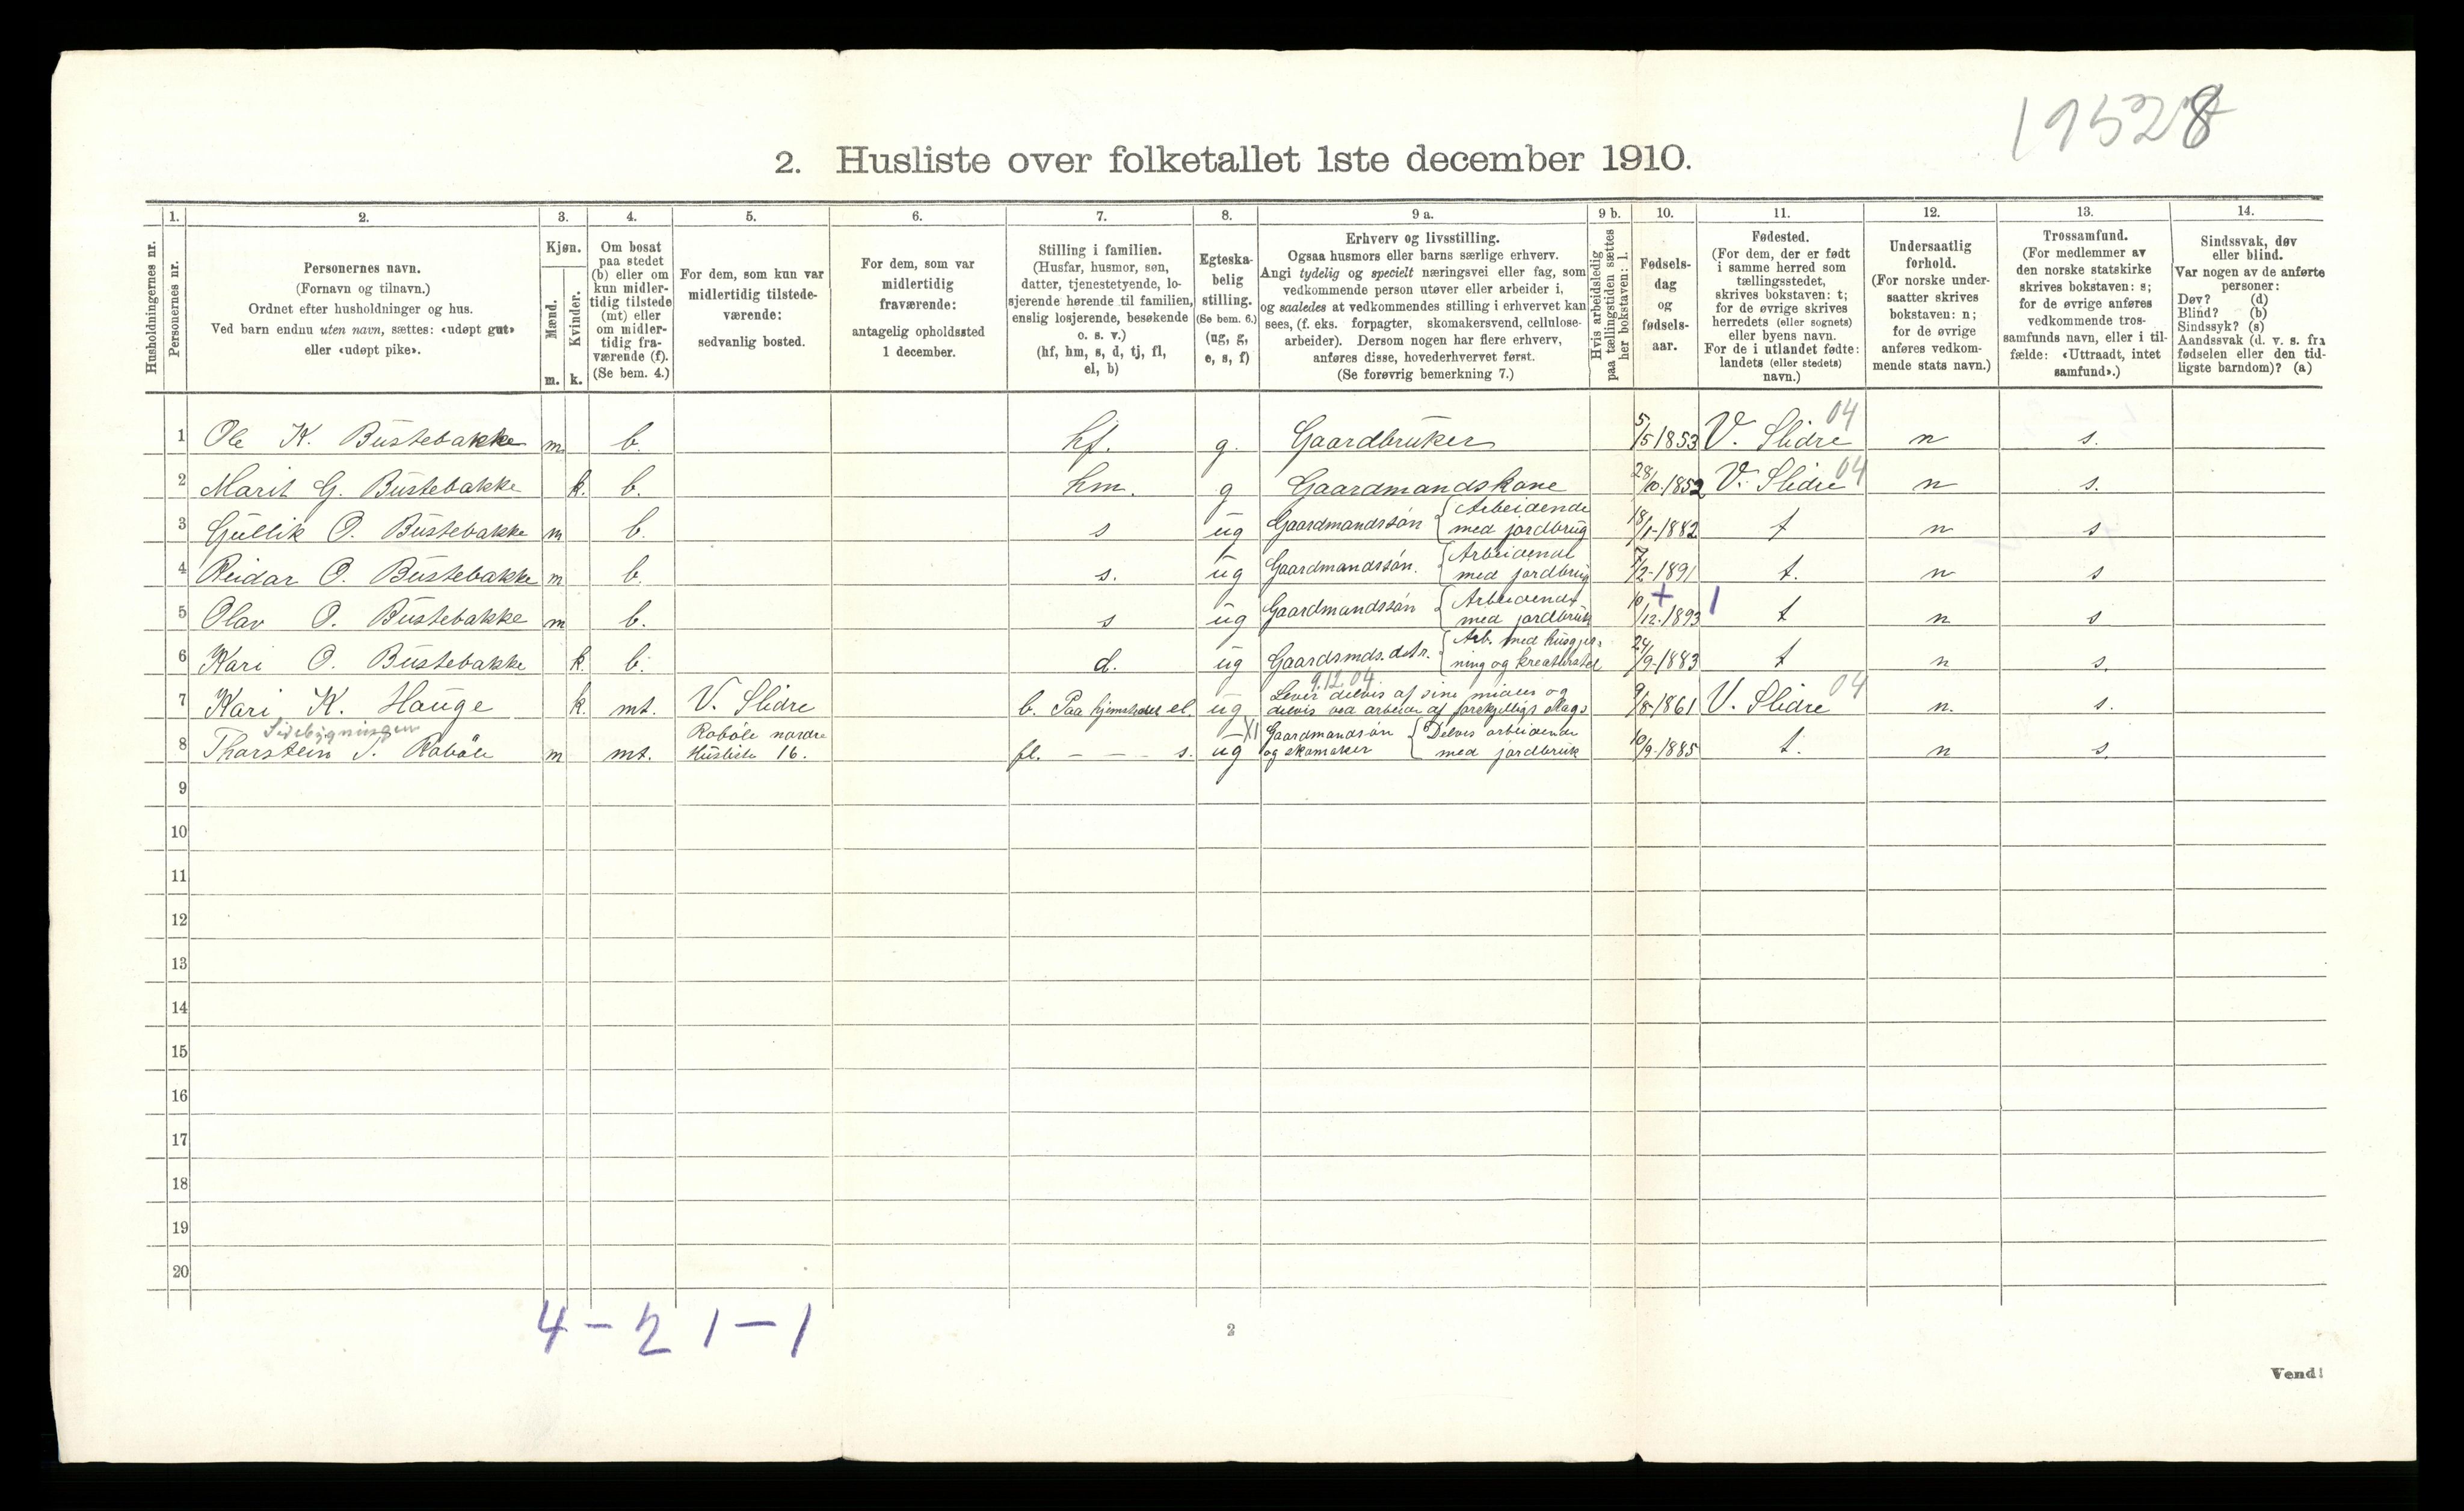 19528
2. Husliste over folketallet 1ste december 1910.
Husholdningernes nr.
1.
Personernes nr.
2.
Personernes navn.
(Fornavn og tilnavn.)
Ordnet efter husholdninger og hus.
Ved barn endnu uten navn, sættes: «udøpt gut»
eller «udøpt pike».
3.
Kjøn.
Mænd.
Kvinder.
m. k.
4.
Om bosat
paa stedet
(b) eller om
kun midler-
tidig tilstede
(mt) eller
om midler-
tidig fra-
værende (f).
(Se bem. 4.)
5.
For dem, som kun var
midlertidig tilstede-
værende:
sedvanlig bosted.
6.
For dem, som var
midlertidig
fraværende:
antagelig opholdssted
1 december.
7.
Stilling i familien.
(Husfar, husmor, søn,
datter, tjenestetyende, lo-
sjerende hørende til familien,
enslig losjerende, besøkende
o. s. v.)
(hf, hm, s, d, tj, fl,
el, b)
8.
Egteska-
belig
stilling.
(Se bem. 6.)
(ug, g,
e, s, f)
9 a.
Erhverv og livsstilling.
Ogsaa husmors eller barns særlige erhverv.
Angi tydelig og specielt næringsvei eller fag, som
vedkommende person utøver eller arbeider i,
og saaledes at vedkommendes stilling i erhvervet kan
sees, (f. eks. forpagter, skomakersvend, cellulose-
arbeider). Dersom nogen har flere erhverv,
anføres disse, hovederhvervet først.
(Se forøvrig bemerkning 7.)
9 b.
Hvis arbeidsledig
paa tællingstiden sættes
her bokstaven: l.
10.
Fødsels-
dag
og
fødsels-
aar.
11.
Fødested.
(For dem, der er født
i samme herred som
tællingsstedet,
skrives bokstaven: t;
for de øvrige skrives
herredets (eller sognets)
eller byens navn.
For de i utlandet fødte:
landets (eller stedets)
navn.)
12.
Undersaatlig
forhold.
(For norske under-
saatter skrives
bokstaven: n;
for de øvrige
anføres vedkom-
mende stats navn.)
13.
Trossamfund.
(For medlemmer av
den norske statskirke
skrives bokstaven: s;
for de øvrige anføres
vedkommende tros-
samfunds navn, eller i til-
fælde: «Uttraadt, intet
samfund».)
14.
Sindssvak, døv
eller blind.
Var nogen av de anførte
personer:
Døv? (d)
Blind? (b)
Sindssyk? (s)
Aandssvak (d. v. s. fra
fødselen eller den tid-
ligste barndom)? (a)
1 Ole K. Bustebakke m. b. hf. g. Gaardbruker 5/5 1853 V. Slidre 04 n s.
2 Marit G. Bustebakke k. b. hm. g Gaardmandskone 28/10.1852 V. Slidre 04 n s.
3 Gullik O. Bustebakke m b. s ug Gaardmandssøn { Arbeidende med jordbrug 18/1-1882 t n s
4 Reidar O. Bustebakke m b. s. ug Gaardmandssøn. { Arbeidende med jordbrug 7/2-1891 t. n s
5 Olav O. Bustebakke m b. s ug Gaardmandssøn { Arbeidende med jordbruk 10/12.1893 + 1 t n s
6 Kari O. Bustebakke k. b. d. ug Gaardsmds. datr. { Arb. med husgjer- ning og kreaturstel 24/9-1883 t n s.
9.12.04
7 Kari K. Hauge k. mt. V. Slidre b. Paa hjemstedet el. ug Lever delvis af sine midler og delvis ved arbeide af forskjelligt slags 9/8-1861 V. Slidre 04 n. s.
Sidebygningen
8 Thorstein T. Roböle m mt. Roböle nordre Husliste 16. fl. - - - s. ug XI Gaardmandssøn og skomaker { Delvis arbeidende med jordbruk 10/9-1885 t. n s.
9
10
11
12
13
14
15
16
17
18
19
20
4 - 2 1 - 1
2
Vend!